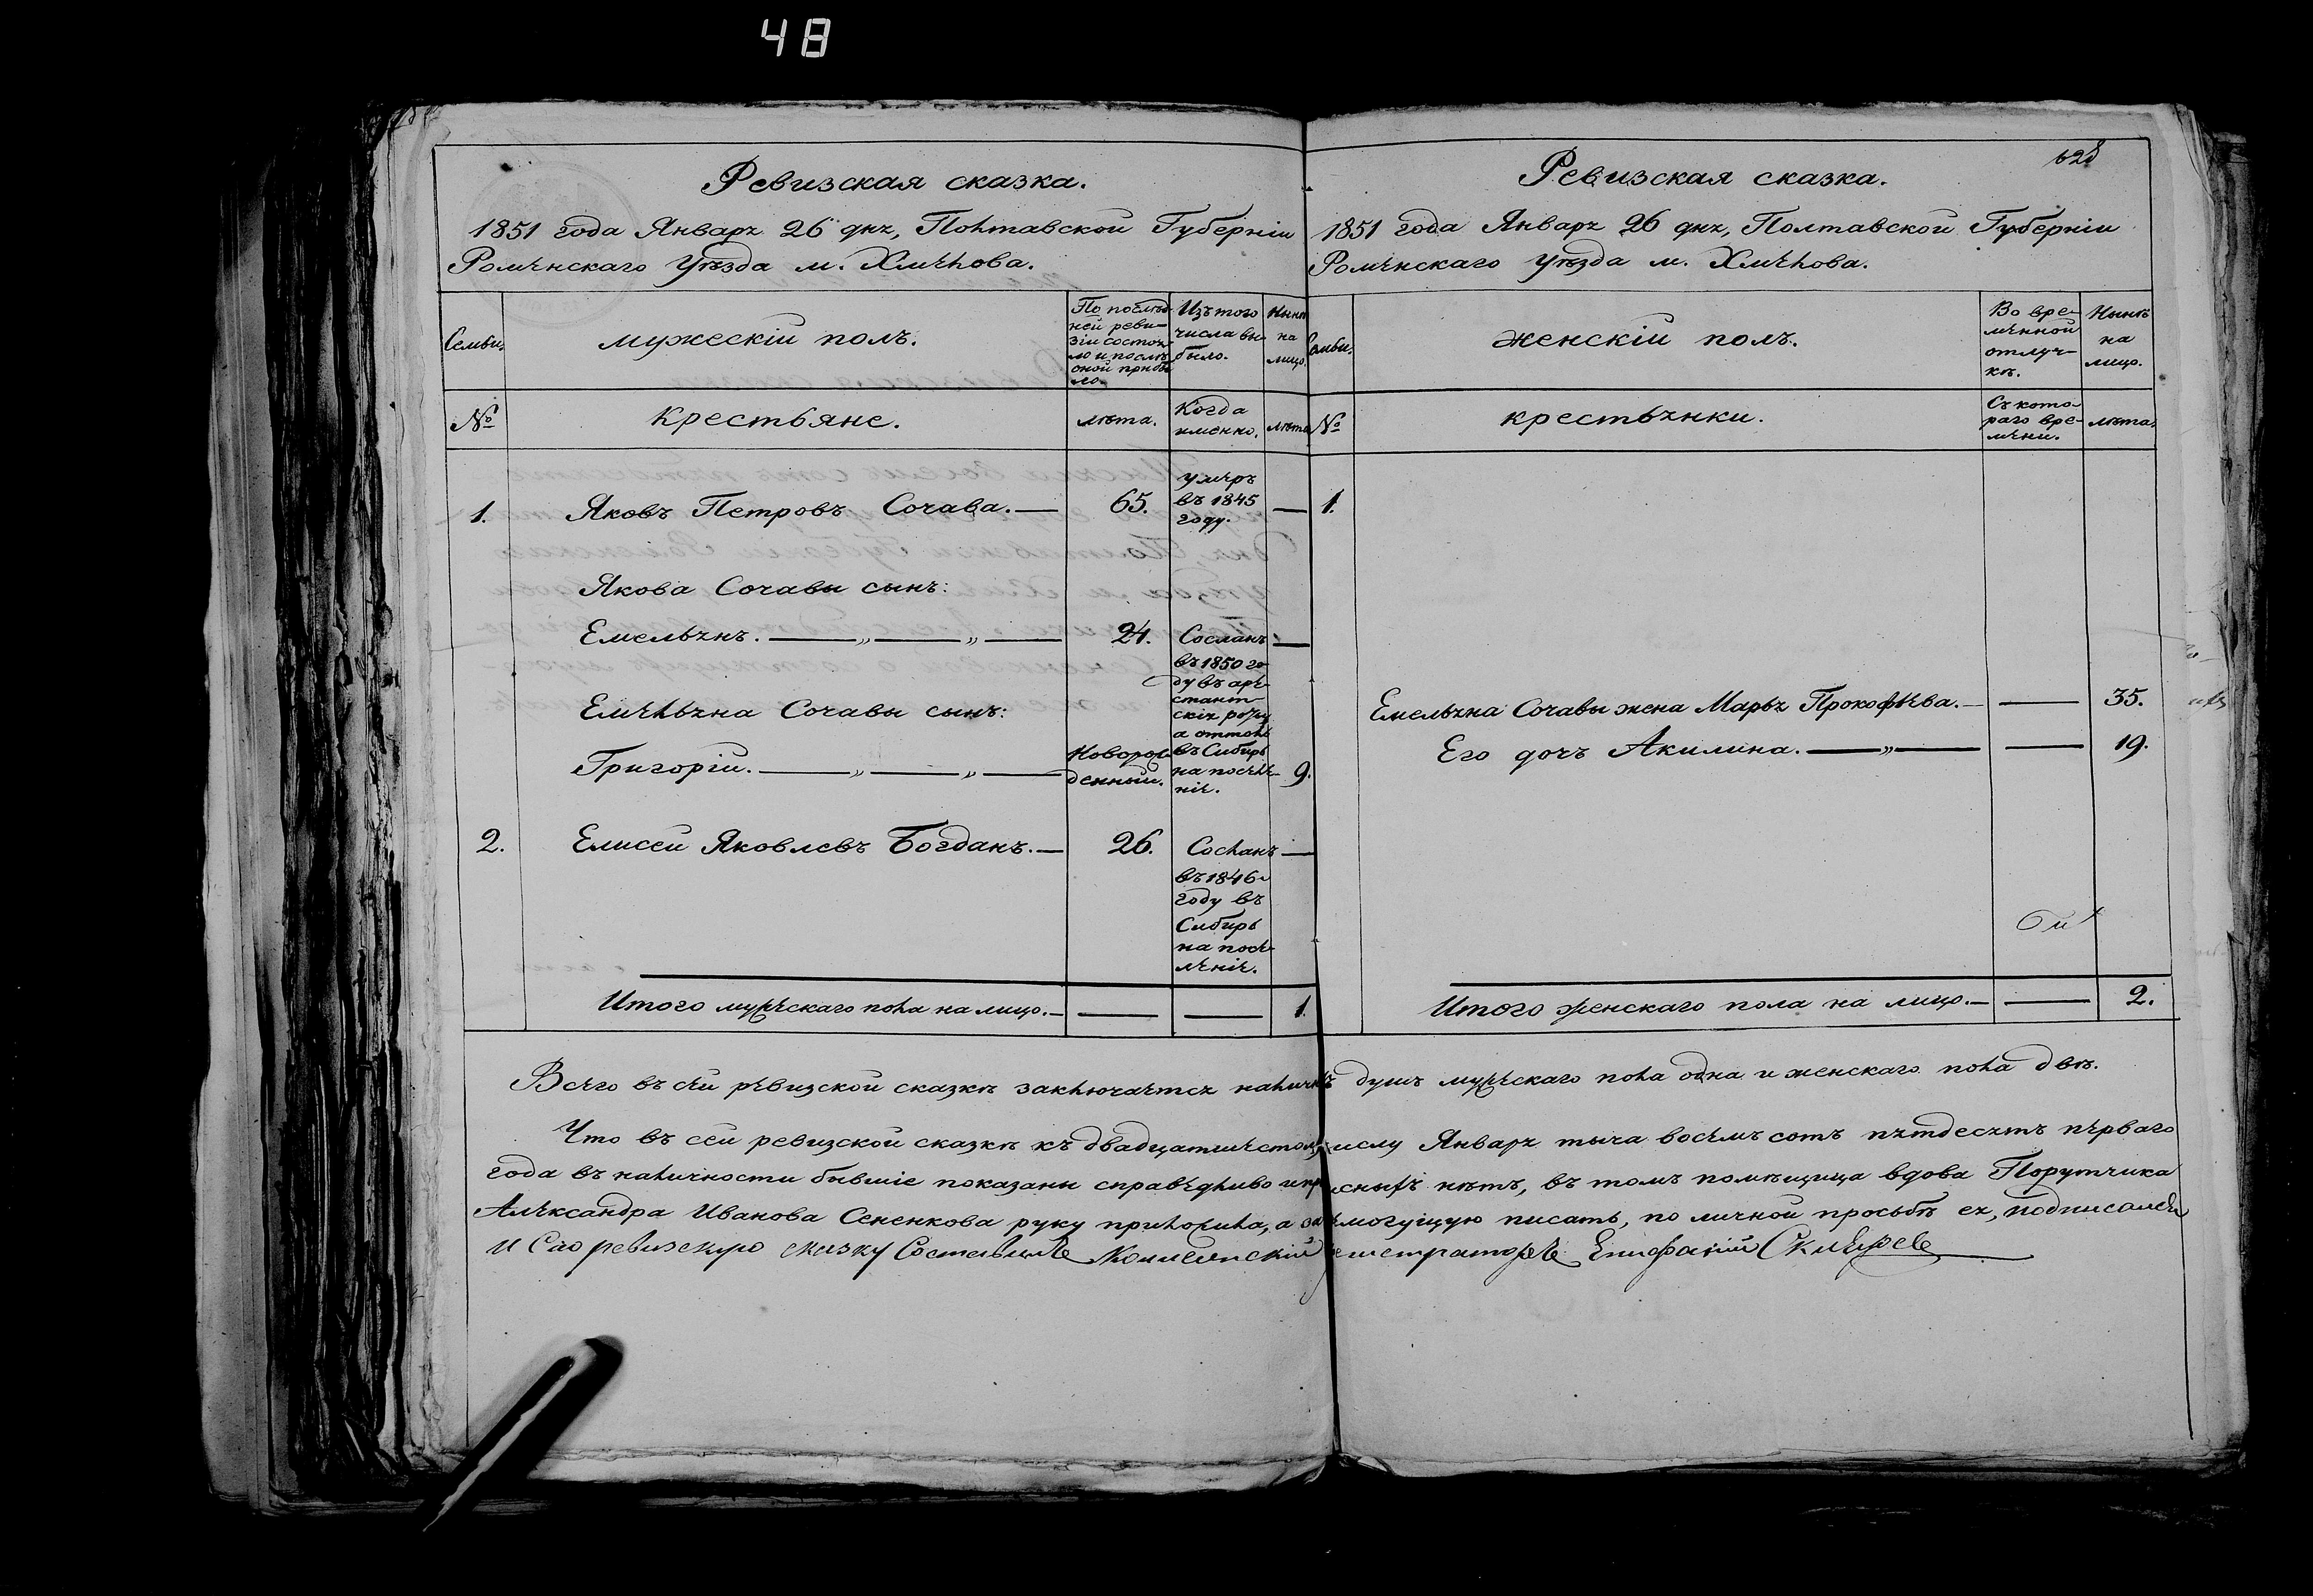 48
628
Ревизская сказка.
1851 года Января 26 дня, Полтавской Губерніи
Роменскаго Уѣзда м. Хмелова.
Семьи.
мужескій полъ.
По послѣд-
ней реви-
зіи состоя-
ло и послѣ
оной прибы
ло.
Изъ того
числа вы-
было.
Нынѣ
на
лицо.
№
крестьяне.
лѣта.
Когда
именно.
лѣта
1.
Яковъ Петровъ Сочава.—
65.
умеръ
въ 1845
году.
—
Якова Сочавы сынъ:
Емельянъ. — „ — „ —
24.
Сосланъ
въ 1850 го-
ду въ аре-
стант-
скія роты
а оттоль
въ Сибирь
на поселе-
ніе.
—
Емельяна Сочавы сынъ:
Григорій. — „ — „ —
Новорож-
денный.
9.
2.
Елисей Яковлевъ Богданъ.—
26.
Сосланъ
въ 1846
году въ
Сибирь
на посе-
леніе.
—
Итого мужескаго пола на лицо.— — — 1.
Ревизская сказка.
1851 года Января 26 дня, Полтавской Губерніи
Роменскаго уѣзда м. Хмелова.
Семьи.
женскій полъ.
Во вре-
менной
отлуч-
кѣ.
Нынѣ
на
лицо.
№
крестьянки.
Съ кото-
раго вре-
мени.
лѣта.
1.
Емельяна Сочавы жена Марья Прокофьева.— — 35.
Его дочь Акилина. — „ — — 19.
Итого женскаго пола на лицо.— — 2.
Всего въ сей ревизской сказкѣ заключается наличныхъ душъ мужескаго пола одна и женскаго пола двѣ.
Что въ сей ревизской сказкѣ къ двадцатишестому числу Января тыча восемъ сотъ пятдесятъ перваго
года въ наличности бывшіе показаны справедливо и прописныхъ нѣтъ, въ томъ помѣщица вдова Порутчика
Александра Иванова Сененкова руку приложила, а за немогущую писать, по личной просьбѣ ея, подписался
и Сію ревизскую сказку Составилъ Колежскій регистраторъ Епифаній